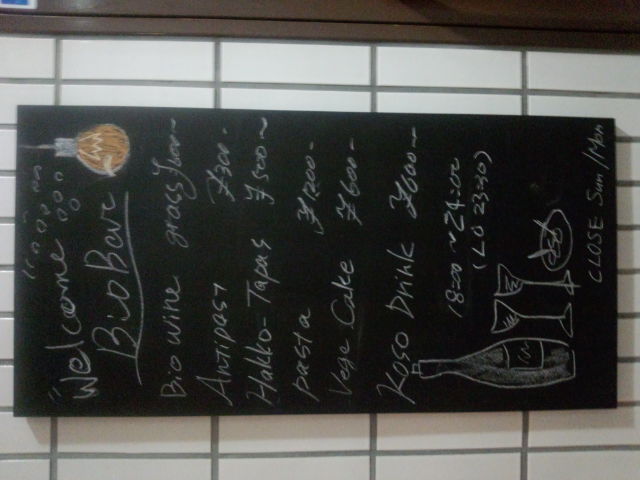 "Welcome"
BioBar
Bio wine grass ¥600~
Antipast ¥300-
Hakko-Tapas ¥500~
pasta ¥1200-
Vege Cake ¥600-
Koso Drink ¥600~
18:00~24:00
(LO 23:30)
CLOSE Sun/Mon